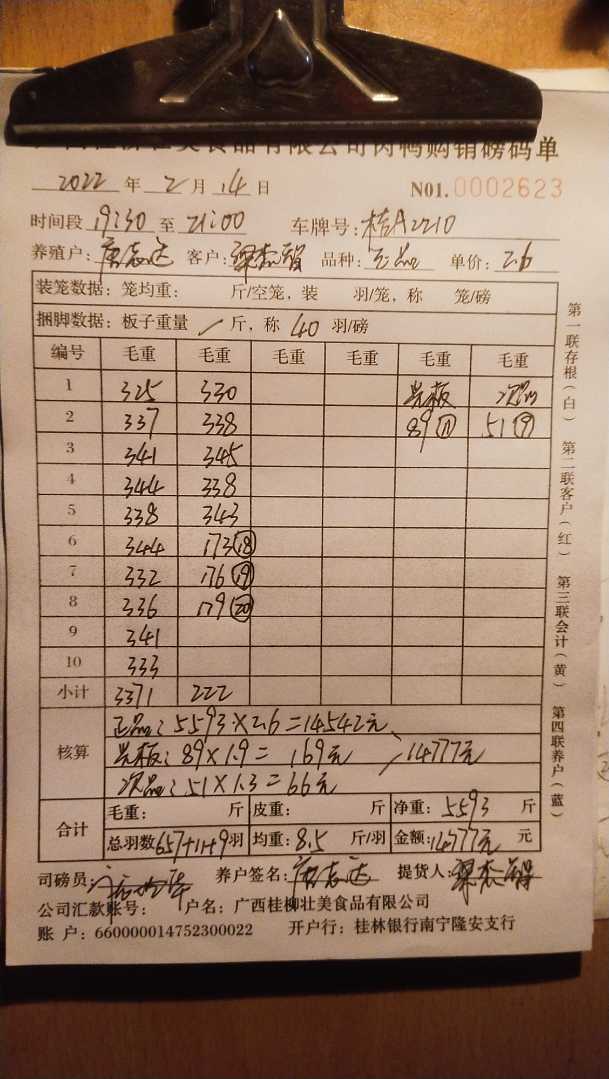 食品有限公司肉鸭购销磅码单
2022 年 2 月 14 日 N01. 0002623
时间段 19:30 至 21:00 车牌号: 桂A2210
养殖户: 唐志达 客户: 品种: 正品 单价: 2.6
装笼数据: 笼均重: 斤/空笼, 装 羽/笼, 称 笼/磅
捆脚数据: 板子重量 / 斤, 称 40 羽/磅
编号 毛重 毛重 毛重 毛重 毛重 毛重
1 325 330 光板 次品
2 337 338 89⑪ 51⑨
3 341 345
4 344 338
5 338 343
6 344 173⑱
7 332 176⑲
8 336 179⑳
9 341
10 333
小计 3371 222
核算 正品: 5593×2.6=14542元
光板: 89×1.9= 169元 14777元
次品: 51×1.3=66元
合计 毛重: 斤 皮重: 斤 净重: 5593 斤
总羽数657+11+9羽 均重: 8.5 斤/羽 金额: 14777元 元
司磅员: 养户签名: 唐志达 提货人:
公司汇款账号: 户名: 广西桂柳壮美食品有限公司
账 户: 660000014752300022 开户行: 桂林银行南宁隆安支行
第一联存根(白) 第二联客户(红) 第三联会计(黄) 第四联养户(蓝)